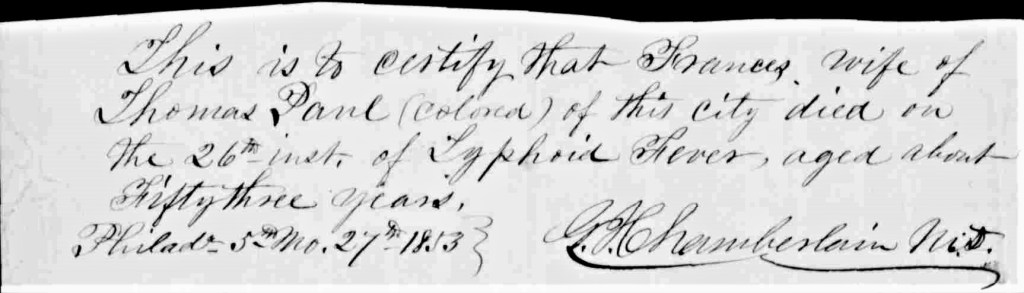 This is to certify that Frances, wife of
Thomas Paul (colored) of this city died on
the 26th inst. of Typhoid Fever, aged about
Fifty three years.
Philada 5th Mo. 27th 1853 } G. A. Chamberlain M.D.